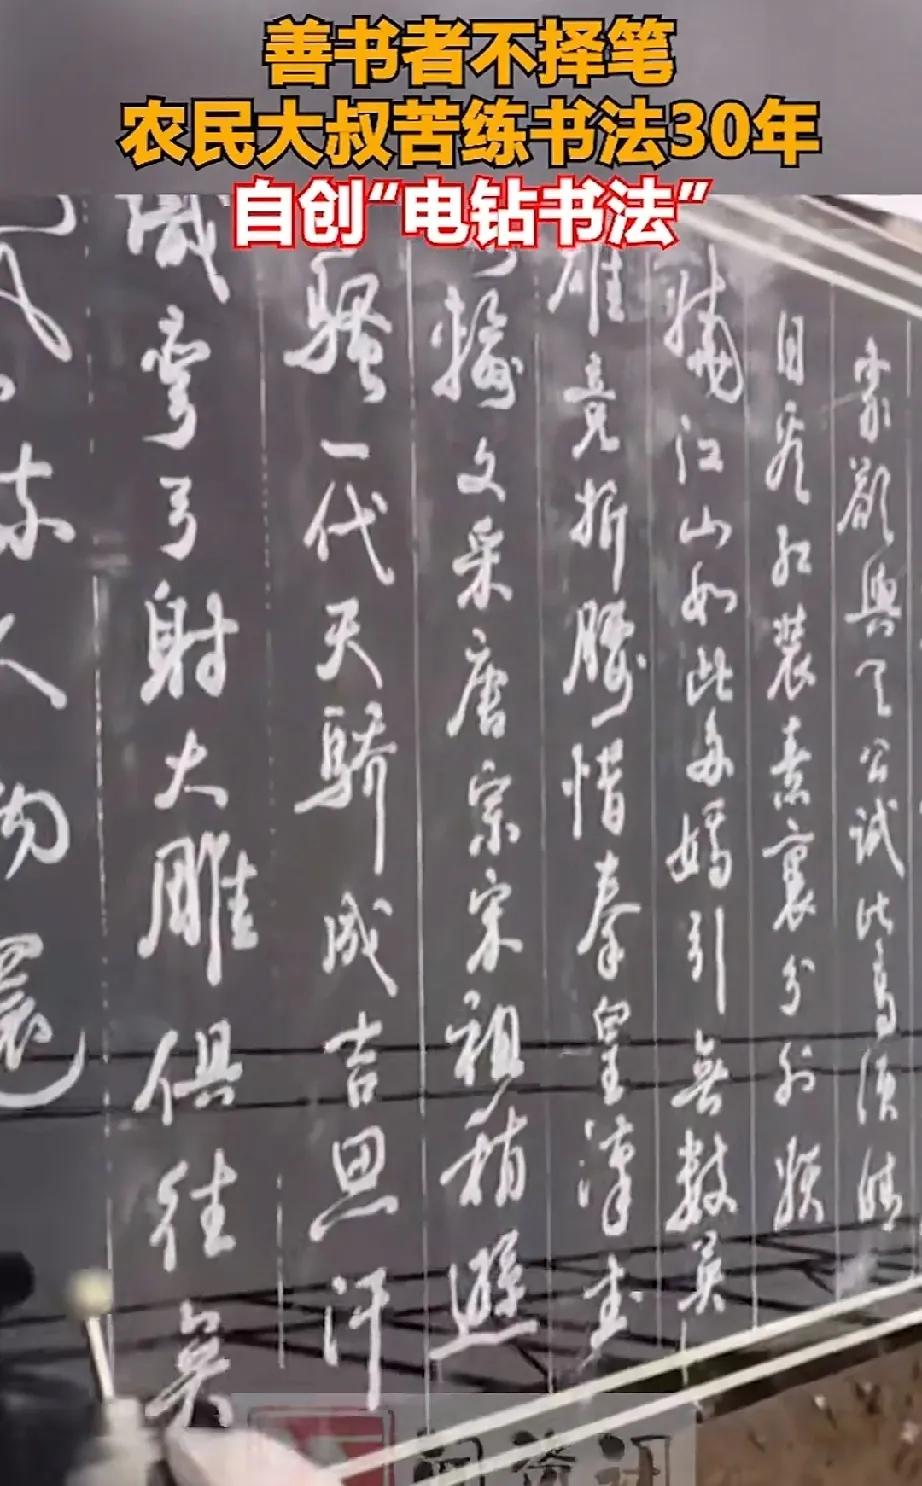 善书者不择笔
农民大叔苦练书法30年
自创“电钻书法”
象欲與天公试比高须晴
日看红装素裹分外妖
娆江山如此多娇引無数英
雄竞折腰惜秦皇漢武
输文采唐宗宋祖稍逊
骚一代天骄成吉思汗
识弯弓射大雕俱往矣
人物還
闻资讯